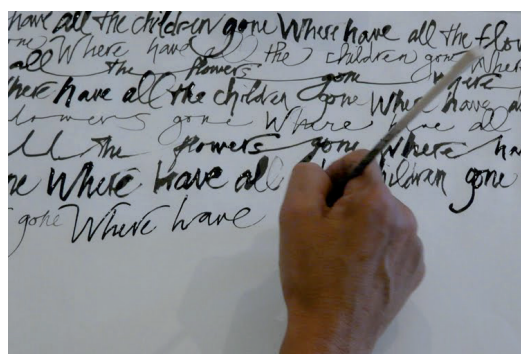 have all the children gone Where have all the flow
one Where have all the children gone Where
all the flowers gone where
here have all the children gone Where have a
lowers gone Where have all
the flowers gone Where ha
ne Where have all children gone
gone Where have